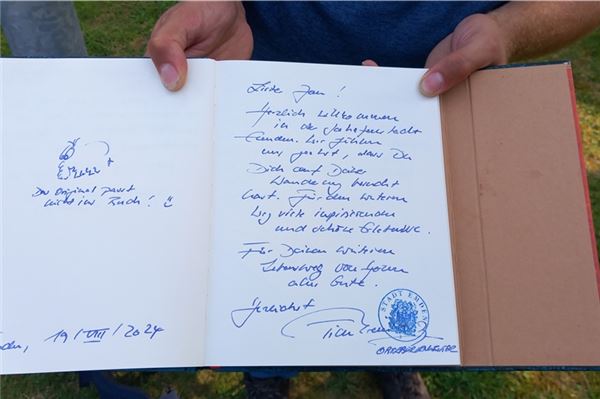 Das Original passt
nicht ins Buch! :)
19/VIII/2024
Lieber Jan!
Herzlich willkommen
in der
Emden. Wir fühlen
uns geehrt, dass Du
Dich auf Deiner
Wanderung besucht
hast. Für den weiteren
Weg viele inspirierenden
und schöne Erlebnisse.
Für Deinen weiteren
Lebensweg von Herzen
alles Gute.
Herzlichst
STADT EMDEN
OBERBÜRGERMEISTER